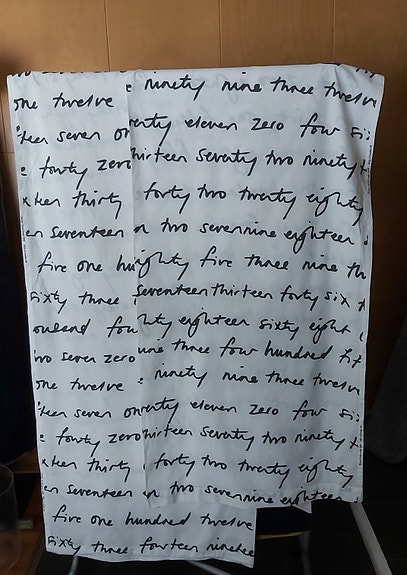 ninety nine three twelve
one twelve
teen seven
enty eleven zero four si
forty zero
hirteen seventy two ninety
ten thirty
forty two twenty eighty
en seventeen
n two seven nine eighteen
five one hu
ighty five three nine th
sixty three
seventeen thirteen forty six
ousand fou
hty eighteen sixty eight
two seven zero
nine three four hundred fif
one twelve
ninety nine three twelve
teen seven on
enty eleven zero four si
forty zero
hirteen seventy two ninety
ten thirty
forty two twenty eighty
en seventeen
n two seven nine eighteen
five one hundred twelve
sixty three fourteen ninetee